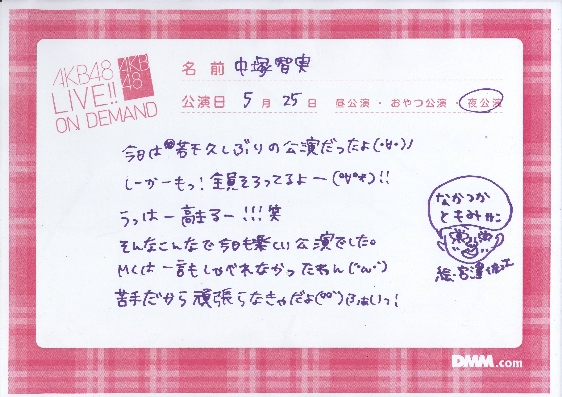 AKB48
LIVE!!
ON DEMAND
AKB
48
名前 中塚智実
公演日 5月25日 昼公演・おやつ公演・夜公演
今日は若干久しぶりの公演だったよ(・∀・)ノ
しーかーもっ!全員そろってるよー(°∀°*)!!
うっはー高まるー!!!笑
そんなこんなで今日も楽しい公演でした。
MCは一言もしゃべれなかったわん(°ω°)
苦手だから頑張らなきゃだよ(°∀°)はぁいっ!
なかつか
ともみ
絵:宮澤佐江
DMM.com